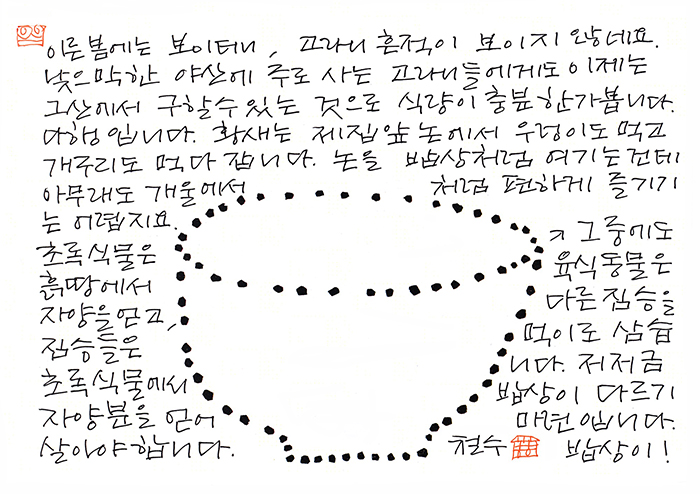 이른봄에는 보이더니, 고라니 흔적이 보이지 않네요.
낮으막한 야산에 주로 사는 고라니들에게도 이제는
그산에서 구할수 있는 것으로 식량이 충분한가봅니다.
다행입니다. 황새는 제집앞 논에서 우렁이도 먹고
개구리도 먹다 갑니다. 논을 밥상처럼 여기는건데
아무래도 개울에서 처럼 편하게 즐기기
는 어렵지요.
초록식물은
흙땅에서
자양을 얻고,
짐승들은
초록식물에서
자양분을 얻어
살아야합니다.
그중에도
육식동물은
다른짐승을
먹이로 삼습
니다. 저저금
밥상이 다르기
마련입니다.
밥상이!
철수